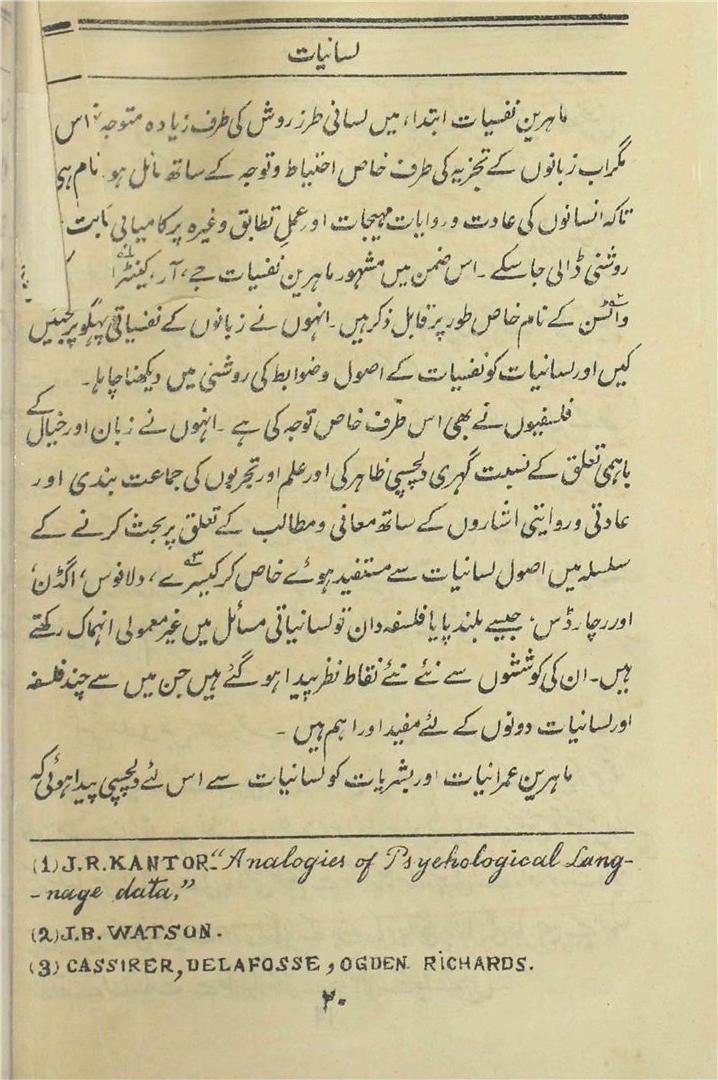 لسانیات
ماہرین نفسیات ابتداء میں لسانی طرز روش کی طرف زیادہ متوجہ اس
مگر اب زبانوں کے تجزیہ کی طرف خاص احتیاط و توجہ کے ساتھ مائل ہو نام ہی
تاکہ انسانوں کی عادت و روایات مہیجات اور عمل تطابق وغیرہ پر کامیابی ثابت
روشنی ڈالی جا سکے ۔ اس ضمن میں مشہور ماہرین نفسیات جے، آر، کینٹر۱
واٹسن۲ کے نام خاص طور پر قابل ذکر ہیں ۔ انہوں نے زبانوں کے نفسیاتی پہلو پر بحثیں
کیں اور لسانیات کو نفسیات کے اصول و ضوابط کی روشنی میں دیکھنا چاہا۔
فلسفیوں نے بھی اس طرف خاص توجہ کی ہے ۔ انہوں نے زبان اور خیال کے
باہمی تعلق کے نسبت گہری دلچسپی ظاہر کی اور علم اور تجربوں کی جماعت بندی اور
عادتی و روایتی اشاروں کے ساتھ معانی و مطالب کے تعلق پر بحث کرنے کے
سلسلہ میں اصول لسانیات سے مستفید ہوئے خاص کر کیسرے۳، دلافوس، اگڈن،
اور رچارڈس، جیسے بلند پایا فلسفہ دان تو لسانیاتی مسائل میں غیر معمولی انہماک رکھتے
ہیں۔ ان کی کوششوں سے نئے نئے نقاط نظر پیدا ہو گئے ہیں جن میں سے چند فلسفہ
اور لسانیات دونوں کے لئے مفید اور اہم ہیں ۔
ماہرین عمرانیات اور بشریات کو لسانیات سے اس لئے دلچسپی پیدا ہوئی کہ
(1) J.R.KANTOR. "Analogies of Psychological Lang-
-nage data."
(2) J.B. WATSON.
(3) CASSIRER, DELAFOSSE, OGDEN. RICHARDS.
۲۰